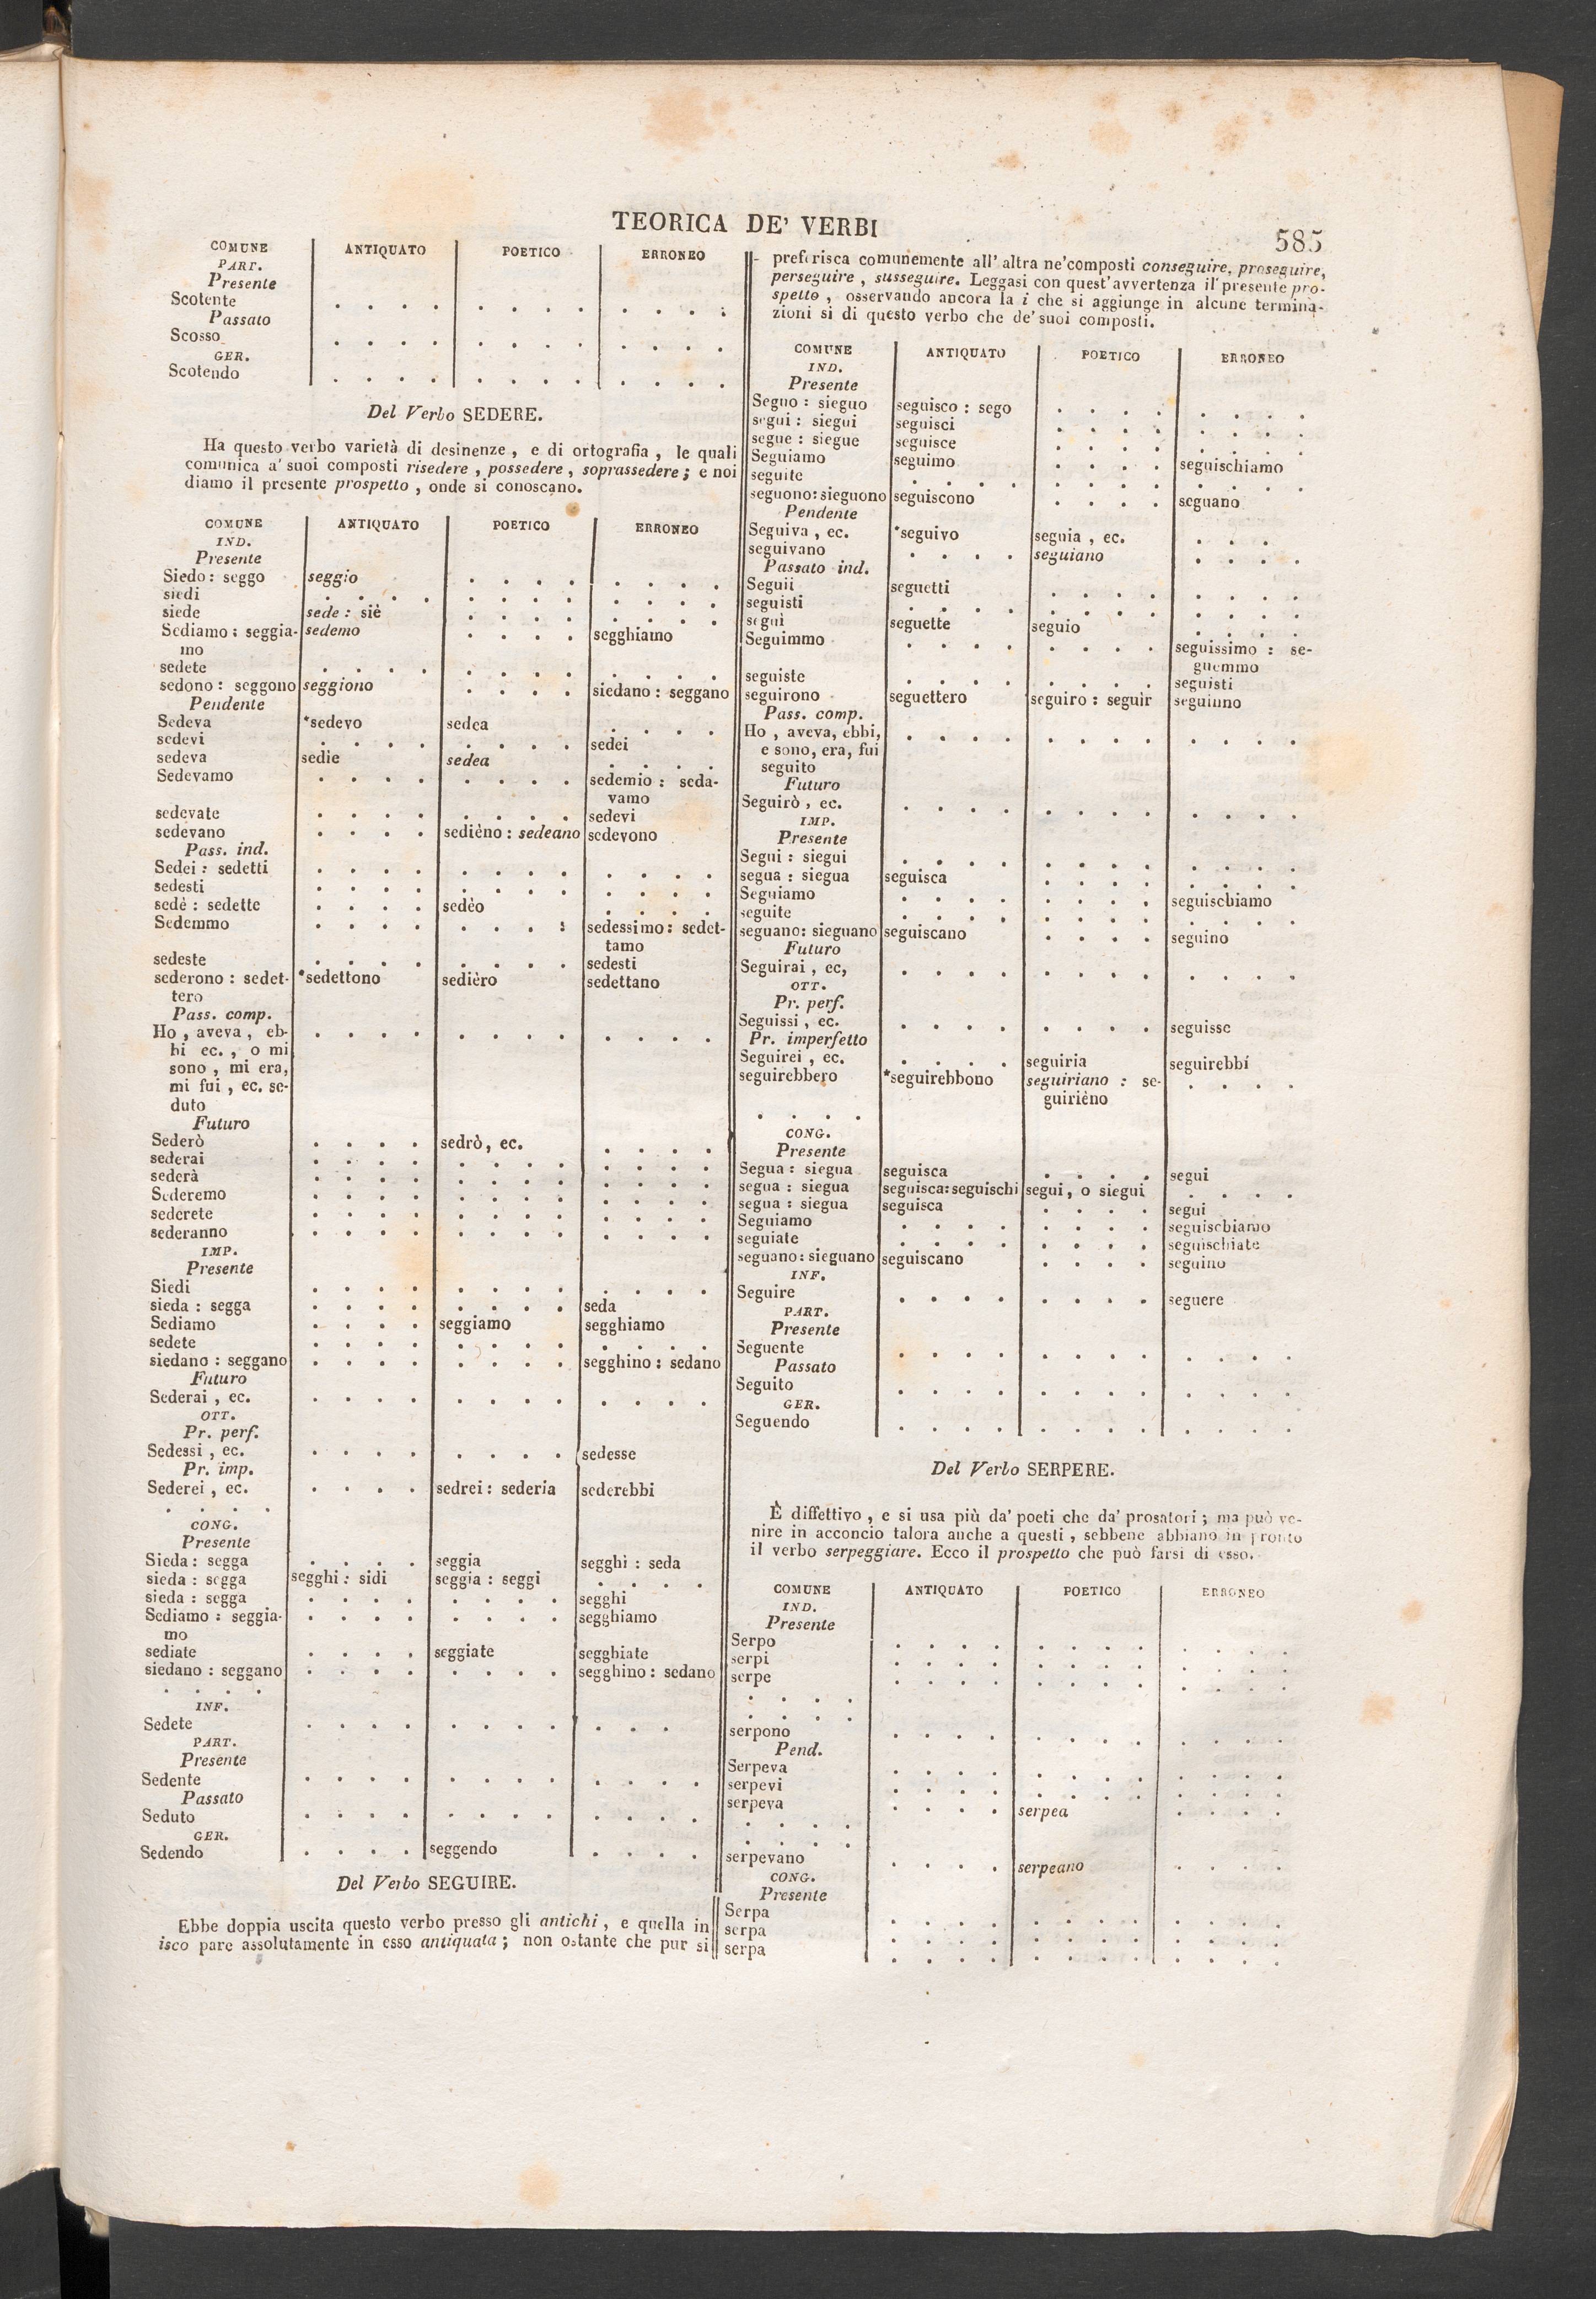 TEORICA DE' VERBI
585
COMUNE ANTIQUATO POETICO ERRONEO
PART.
Presente
Scotente . . . . . . . . . . . .
Passato
Scosso . . . . . . . . . . . .
GER.
Scotendo . . . . . . . . . . . .
Del Verbo SEDERE.
Ha questo verbo varietà di desinenze, e di ortografia, le quali
comunica a' suoi composti risedere, possedere, soprassedere; e noi
diamo il presente prospetto, onde si conoscano.
COMUNE ANTIQUATO POETICO ERRONEO
IND.
Presente
Siedo: seggo seggio . . . . . . . .
siedi . . . . . . . . . . . .
siede sede: siè . . . . . . . .
Sediamo: seggia- sedemo . . . . segghiamo
mo
sedete . . . . . . . . . . . .
sedono: seggono seggiono . . . . siedano: seggano
Pendente
Sedeva *sedevo sedea . . . .
sedevi . . . . . . . . sedei
sedeva sedie sedea . . . .
Sedevamo . . . . . . . . sedemio: seda-
vamo
sedevate . . . . . . . . sedevi
sedevano . . . . sedièno: sedeano sedevono
Pass. ind.
Sedei: sedetti . . . . . . . . . . . .
sedesti . . . . . . . . . . . .
sedè: sedette . . . . sedèo . . . .
Sedemmo . . . . . . . : sedessimo: sedet-
tamo
sedeste . . . . . . . . sedesti
sederono: sedet- *sedettono sedièro sedettano
tero
Pass. comp.
Ho, aveva, eb- . . . . . . . . . . . .
bi ec., o mi
sono, mi era,
mi fui, ec. se-
duto
Futuro
Sederò . . . . sedrò, ec. . . . .
sederai . . . . . . . . . . . .
sederà . . . . . . . . . . . .
Sederemo . . . . . . . . . . . .
sederete . . . . . . . . . . . .
sederanno . . . . . . . . . . . .
IMP.
Presente
Siedi . . . . . . . . . . . .
sieda: segga . . . . . . . . seda
Sediamo . . . . seggiamo segghiamo
sedete . . . . . . . . . . . .
siedano: seggano . . . . . . . . segghino: sedano
Futuro
Sederai, ec. . . . . . . . . . . . .
OTT.
Pr. perf.
Sedessi, ec. . . . . . . . . sedesse
Pr. imp.
Sederei, ec. . . . . sedrei: sederia sederebbi
. . . .
CONG.
Presente
Sieda: segga . . . . seggia segghi: seda
sieda: segga segghi: sidi seggia: seggi . . . .
sieda: segga . . . . . . . . segghi
Sediamo: seggia- . . . . . . . . segghiamo
mo
sediate . . . . seggiate segghiate
siedano: seggano . . . . . . . . segghino: sedano
. . . .
INF.
Sedete . . . . . . . . . . .
PART.
Presente
Sedente . . . . . . . . . . . .
Passato
Seduto . . . . . . . . . . . .
GER.
Sedendo . . . . seggendo . . . .
Del Verbo SEGUIRE.
Ebbe doppia uscita questo verbo presso gli antichi, e quella in
isco pare assolutamente in esso antiquata; non ostante che pur si
preferisca comunemente all' altra ne' composti conseguire, proseguire,
perseguire, susseguire. Leggasi con quest'avvertenza il presente pro-
spetto, osservando ancora la i che si aggiunge in alcune termina-
zioni sì di questo verbo che de' suoi composti.
COMUNE ANTIQUATO POETICO ERRONEO
IND.
Presente
Seguo: sieguo seguisco: sego . . . . . . . .
segui: siegui seguisci . . . . . . . .
segue: siegue seguisce . . . . . . . .
Seguiamo seguimo . . . . seguischiamo
seguite . . . . . . . . . . . .
seguono: sieguono seguiscono . . . . seguano
Pendente
Seguiva, ec. *seguivo seguia, ec. . . .
seguivano . . . . seguiano . . . .
Passato ind.
Seguii seguetti . . . . . . . .
seguisti . . . . . . . . . . . .
seguì seguette seguio . . . .
Seguimmo . . . . . . . . seguissimo: se-
guemmo
seguiste . . . . . . . . seguisti
seguirono seguettero seguiro: seguir seguinno
Pass. comp.
Ho, aveva, ebbi, . . . . . . . . . . . .
e sono, era, fui
seguito
Futuro
Seguirò, ec. . . . . . . . . . . . .
IMP.
Presente
Segui: siegui . . . . . . . . . . . .
segua: siegua seguisca . . . . . . . .
Seguiamo . . . . . . . . seguischiamo
seguite . . . . . . . . . . . .
seguano: sieguano seguiscano . . . . seguino
Futuro
Seguirai, ec, . . . . . . . . . . . .
OTT.
Pr. perf.
Seguissi, ec. . . . . . . . . seguisse
Pr. imperfetto
Seguirei, ec. . . . . seguiria seguirebbi
seguirebbero *seguirebbono seguiriano: se- . . . .
guirièno
. . . .
CONG.
Presente
Segua: siegua seguisca . . . . segui
segua: siegua seguisca: seguischi segui, o siegui . . . .
segua: siegua seguisca . . . . segui
Seguiamo . . . . . . . . seguischiamo
seguiate . . . . . . . . seguischiate
seguano: sieguano seguiscano . . . . seguino
INF.
Seguire . . . . . . . . seguere
PART.
Presente
Seguente . . . . . . . . . . . .
Passato
Seguito . . . . . . . . . . . .
GER.
Seguendo . . . . . . . . . . . .
Del Verbo SERPERE.
È diffettivo, e si usa più da' poeti che da' prosatori; ma può ve-
nire in acconcio talora anche a questi, sebbene abbiano in pronto
il verbo serpeggiare. Ecco il prospetto che può farsi di esso.
COMUNE ANTIQUATO POETICO ERRONEO
IND.
Presente
Serpo . . . . . . . . . . . .
serpi . . . . . . . . . . . .
serpe . . . . . . . . . . . .
. . . .
. . . .
serpono . . . . . . . . . . . .
Pend.
Serpeva . . . . . . . . . . . .
serpevi . . . . . . . . . . . .
serpeva . . . . serpea . . . .
. . . .
. . . .
serpevano . . . . serpeano . . . .
CONG.
Presente
Serpa . . . . . . . . . . . .
serpa . . . . . . . . . . . .
serpa . . . . . . . . . . . .